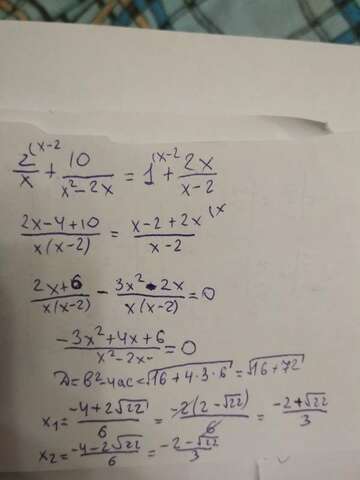 2(x-2/x + 10/x²-2x = 1(x-2 + 2x/x-2
2x-4+10/x(x-2) = x-2+2x/x-2 (x
2x+6/x(x-2) - 3x²-2x/x(x-2) = 0
-3x²+4x+6/x²-2x = 0
D=b²-4ac=√16+4·3·6=√16+72
x₁=-4+2√22/6=-2(2-√22)/6=-2+√22/3
x₂=-4-2√22/6=-2-√22/3